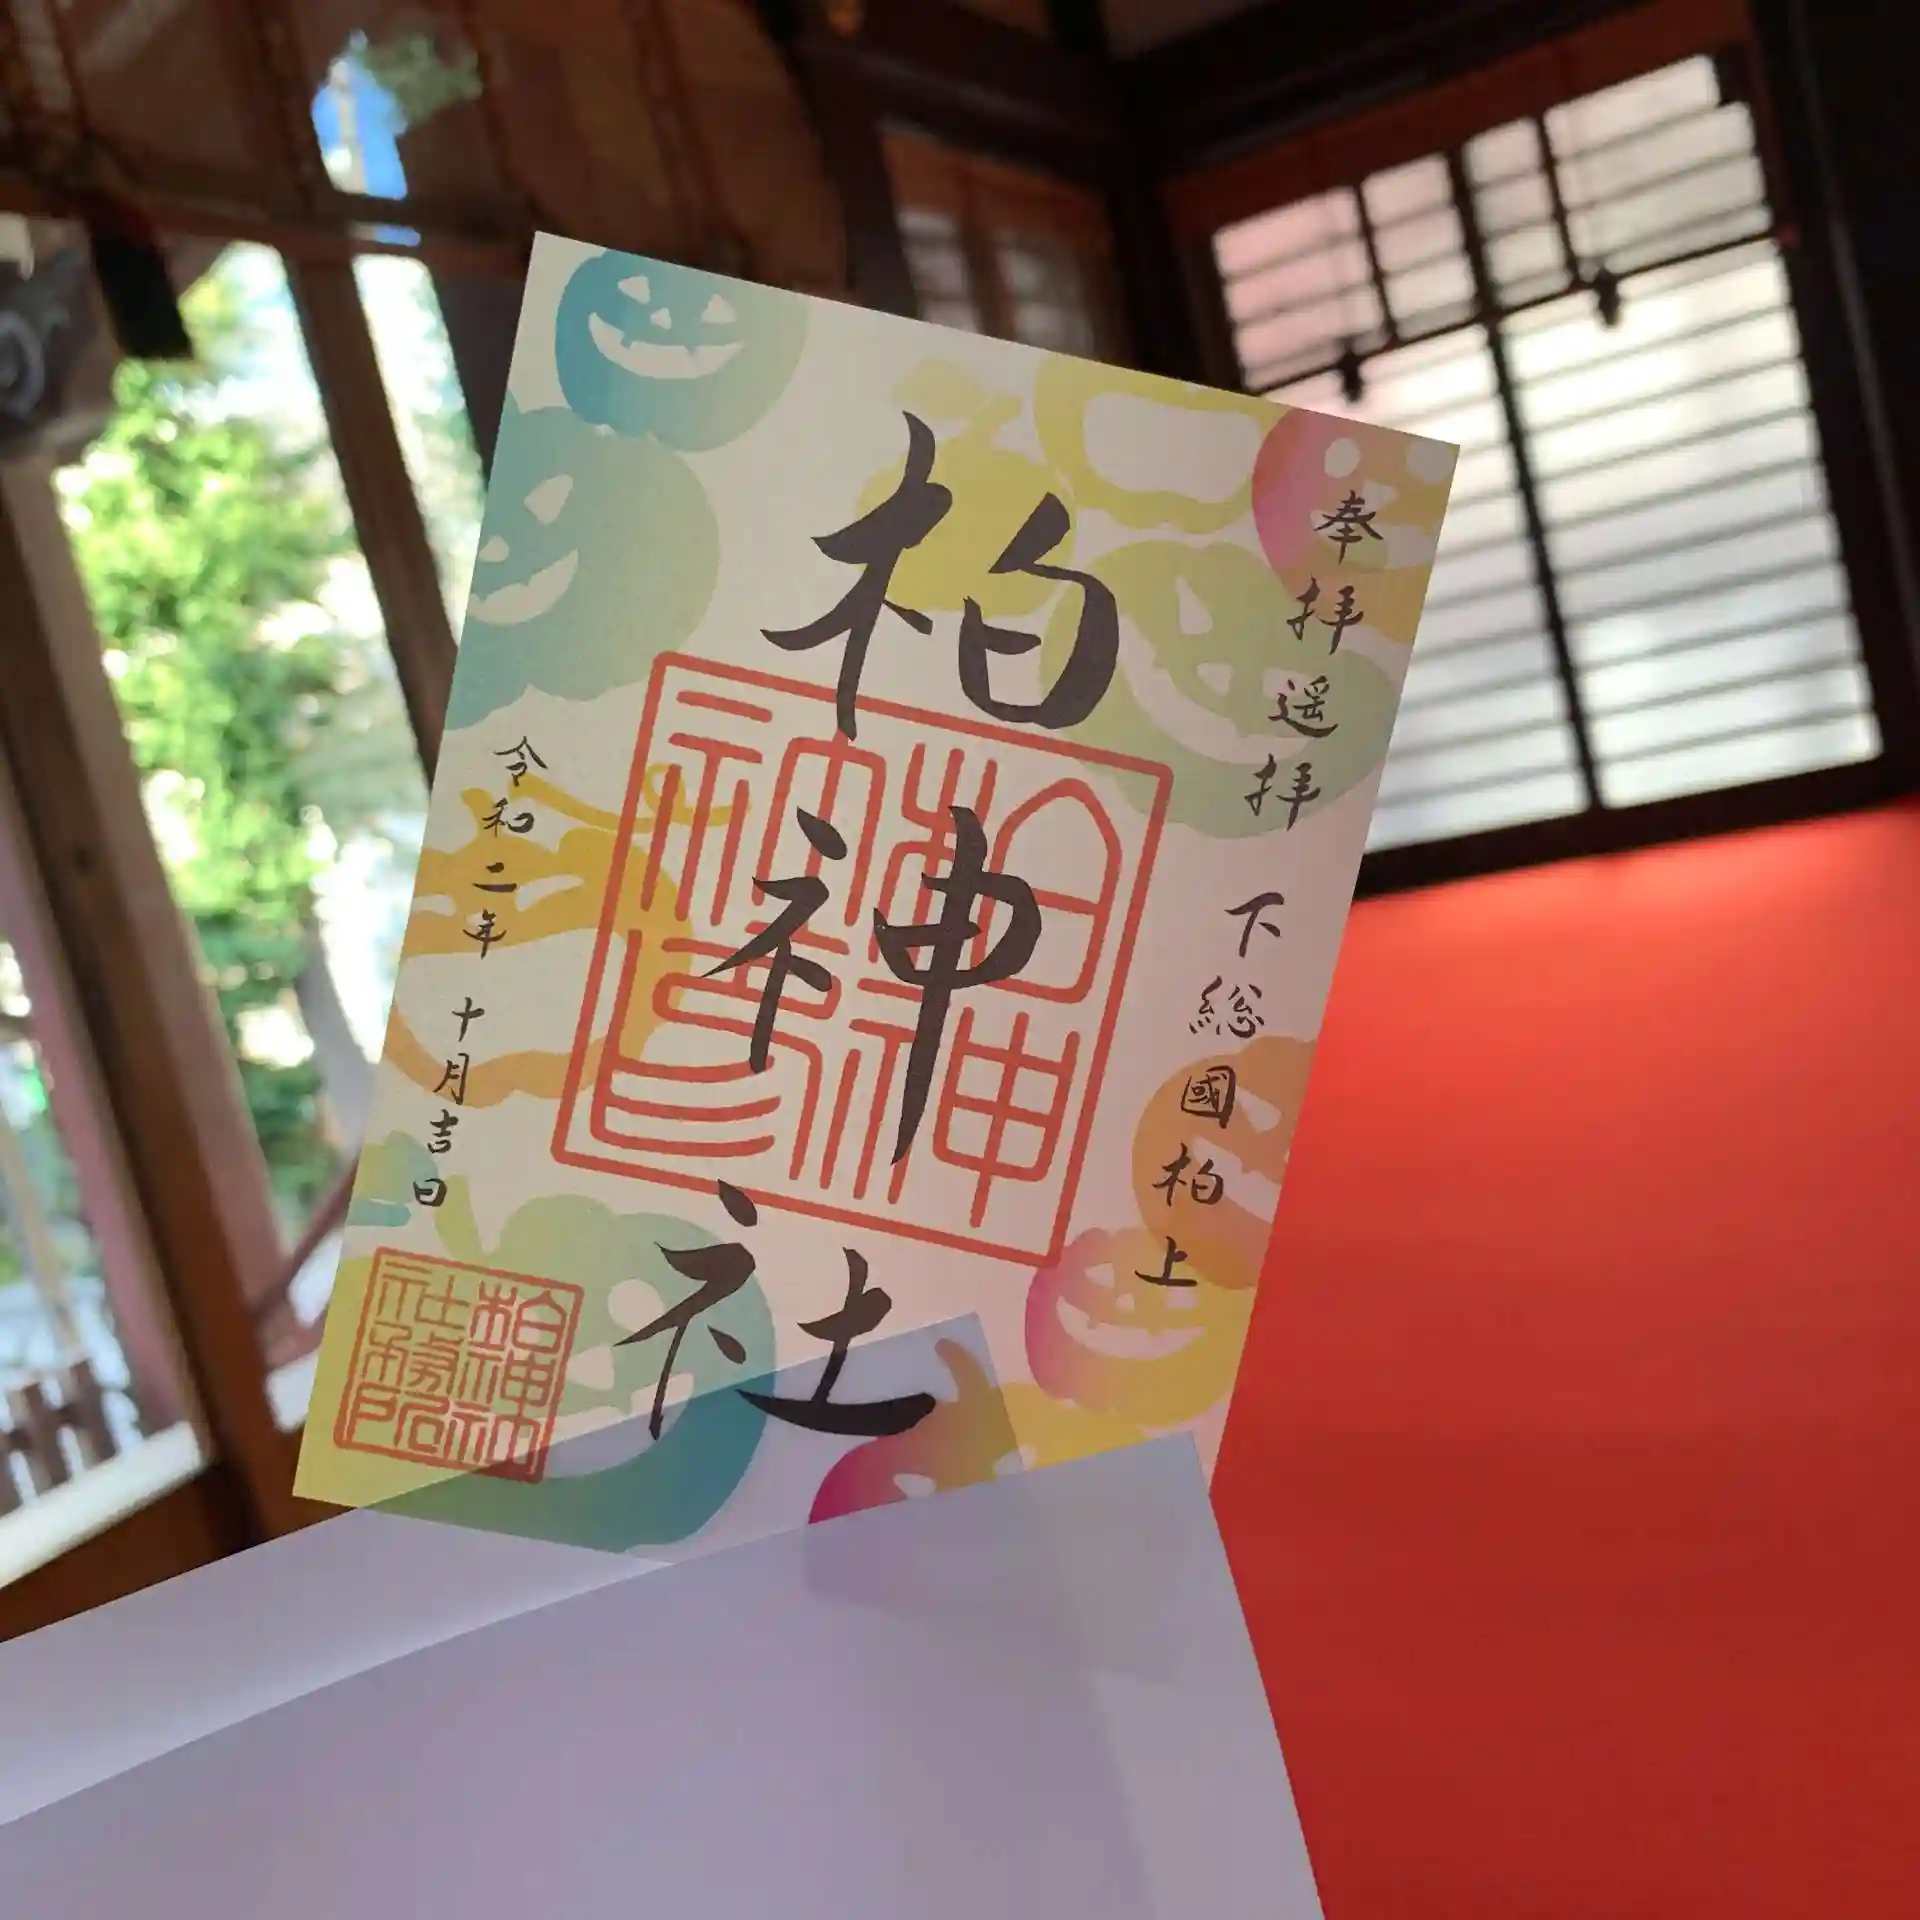 奉拝遥拝
下総國柏上
柏神社
柏神社印
令和二年 十月吉日
柏神社
社務所